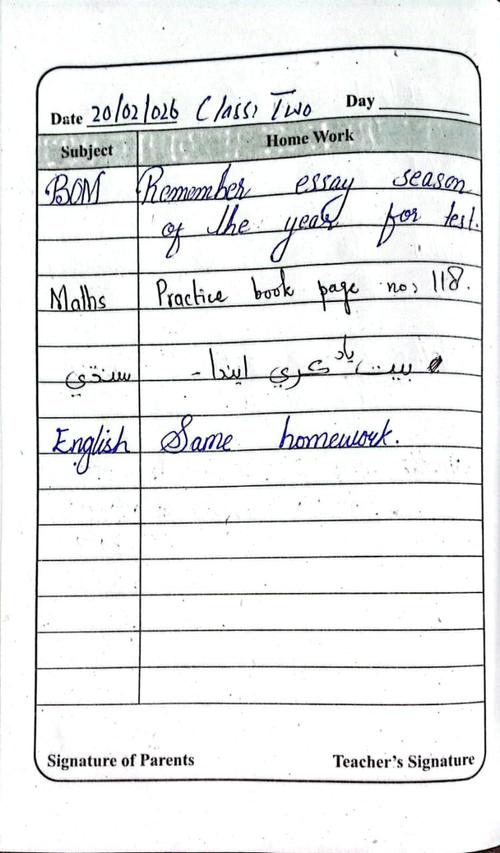 Date 20/02/026 Class: Two Day
Subject Home Work
BOM Remember essay season
of the year for test.
Maths Practice book page no: 118.
سنڌي بيت ياد ڪري ايندا -
English Same homework.
Signature of Parents Teacher's Signature